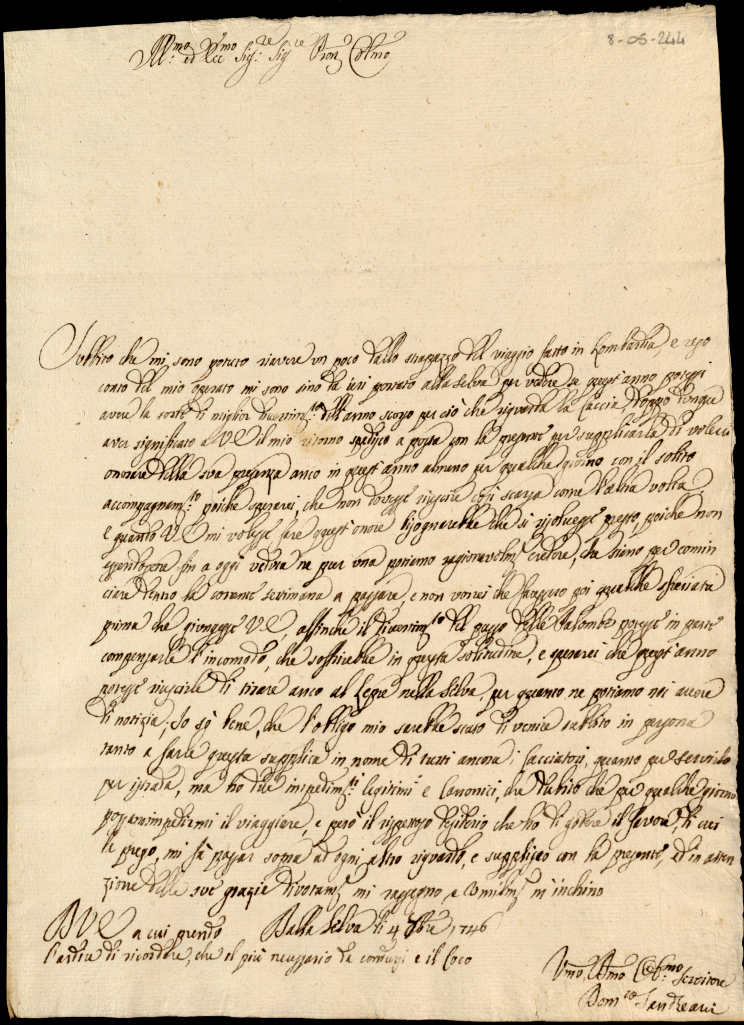 8-05-244
Ill.mo ed Ecc.mo Sig.re Sig.re Pron Colmo
Subbito che mi sono potuto riavere un poco dallo strapazzo del viaggio fatto in Lombardia, e reso
conto del mio operato mi sono sino da ieri portato alla Selva per vedere se quest'anno potessi
avere la sorte di miglior divertim.to dell'anno scorso per ciò che riguarda la Caccia,
aver significato a V.E. il mio ritorno spedisco a posta con la presente per supplicarla di volerci
onorare della sua presenza anco in quest'anno almeno per qualche giorno con il solito
accompagnam.to poiche sperarei, che non dovesse riuscire così scarza come l'altra volta
e quanto V.E. mi volesse fare quest'onore bisognarebbe che si risolvesse presto, poiche non
fin a oggi veduta ne pur una potiamo ragionevolm.e credere, che siano per comin
ciare dentro la corrente settimana a passare e non vorrei che facessero poi qualche sfuriata
prima che giungesse V.E., affinche il divertim.to del passo delle Palombe potesse in parte
compensarle l'incomodo, che soffrirebbe in questa solitudine, e sperarei che quest'anno
potesse riuscirle di tirare anco al Lepre nella Selva per quanto ne potiamo noi avere
di notizia; Io sò bene, che l'obbligo mio sarebbe stato di venire subbito in persona
tanto a farle questa supplica in nome di tutti ancora i Cacciatori, quanto per servirlo
per istrada, ma ho due impedim.ti legitimi e Canonici, che dubito che per qualche giorno
possano impedirmi il viaggiare, e però il rispettoso desiderio che ho di godere il favore, di cui
la prego, mi fà passar sopra ad ogni altro riguardo, e supplisco con la presente, ed in atten
zione delle sue grazie divotam.e mi rassegno, e umilm.e m'inchino
D V.E. a cui prendo Dalla Selva li 4 8bre 1746
l'ardire di ricordare, che il più necessario da condursi è il Coco
Umo, Dmo, Obb.mo Servitore
Dom.co Sandreani